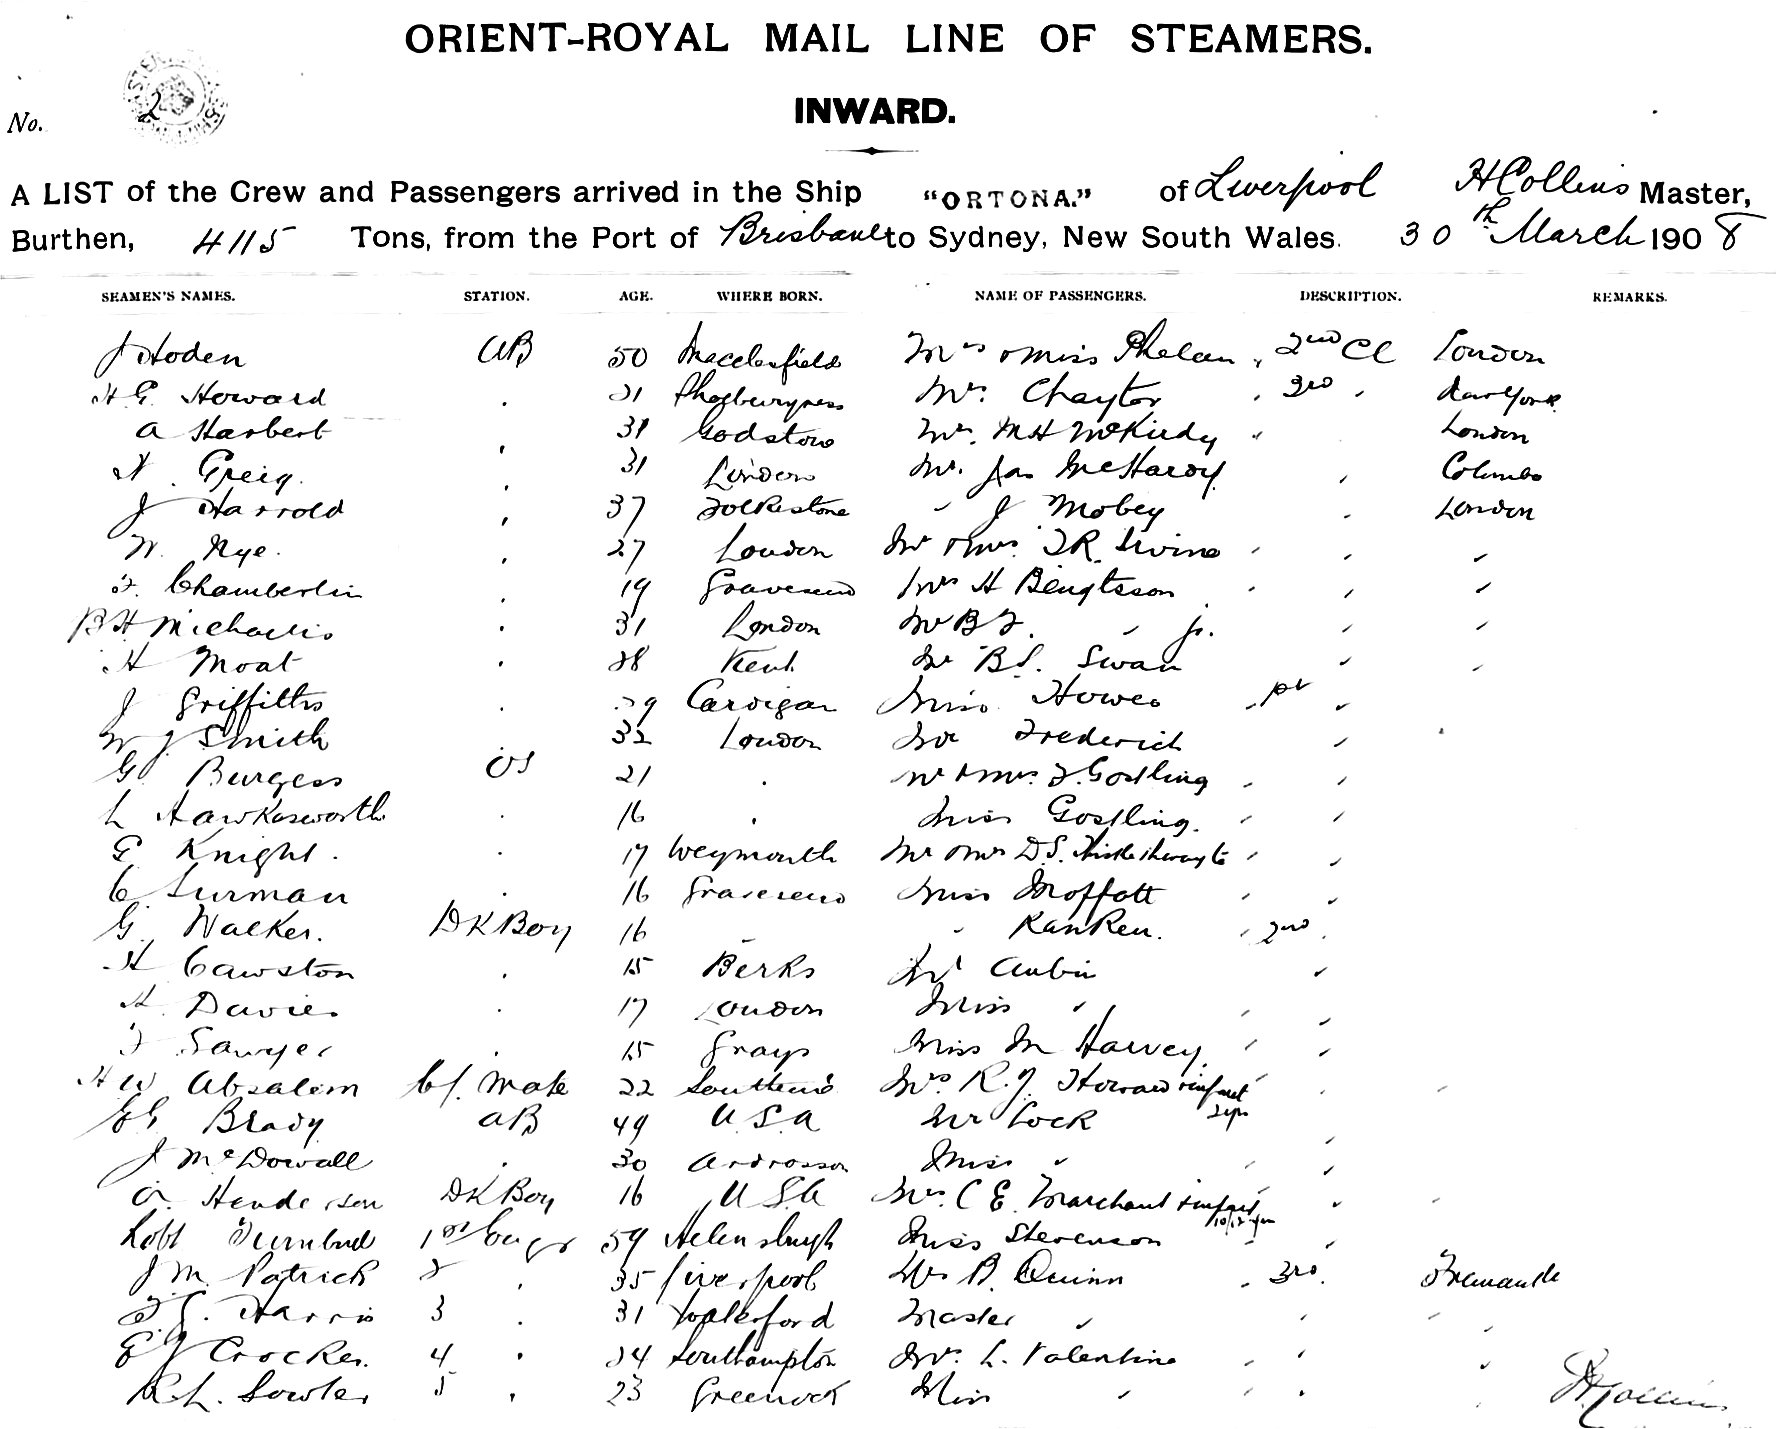 ORIENT-ROYAL MAIL LINE OF STEAMERS.
No. 2
INWARD.
A LIST of the Crew and Passengers arrived in the Ship "ORTONA." of Liverpool H Collins Master,
Burthen, 4115 Tons, from the Port of Brisbane to Sydney, New South Wales. 30th March 1908
SEAMEN'S NAMES. STATION. AGE. WHERE BORN. NAME OF PASSENGERS. DESCRIPTION. REMARKS.
J Hoden AB 50 Macclesfield Mrs & Miss Phelan 2nd Cl London
H G Howard 31 Mr. Chaytor 3rd
A Harbert 31 Godstow Mr. MH McKirdy London
Greig 31 London Mr. Jas McHardy Colombo
J Harrold 37 Folkestone " J Mobey London
W. Rye. 27 London Mr & Mrs. Irvine "
F. Chamberlin 19 Gravesend Mrs H Bengtsson "
B H Michaelis 31 London Mr B F. " jr. "
H Moat 28 Kent Mr Swan "
J Griffiths 29 Cardigan Miss Howes 1st "
W J Smith 32 London Frederick "
G Burgess OS 21 " Mr & Mrs. F. Gostling " "
L Hawkesworth " 16 " Miss Gostling. " "
G Knight. " 17 Weymouth Mr & Mrs D.S. " "
C Surman " 16 Gravesend Miss Moffatt " "
G. Walker. DK Boy 16 " " RanKen. " 2nd
H Cawston " 15 Berks Mr Aubin "
H. Davies " 17 London Miss " " "
F Sawyer " 15 Grays Miss M Harvey " "
H W Absalom 22 Southend Mrs R. J. Howard & infant
Brady AB 49 U.S.A Mr Cock "
J McDowall " 30 Ardrossan Miss " " "
Henderson DK Boy 16 U.S.A Mrs. C E. Marchant & infant "
Robt Turnbull 59 Helensburgh Miss Stevenson "
J M. Patrick 2 " 35 Liverpool B. Quinn " 3rd. Fremantle
Harris 3 " 31 Waterford Master " " "
E J Crocker. 4 " 24 Southampton L. Valentine " " "
R. L. Sowter 5 " 23 Greenock Miss " " "
H Collins